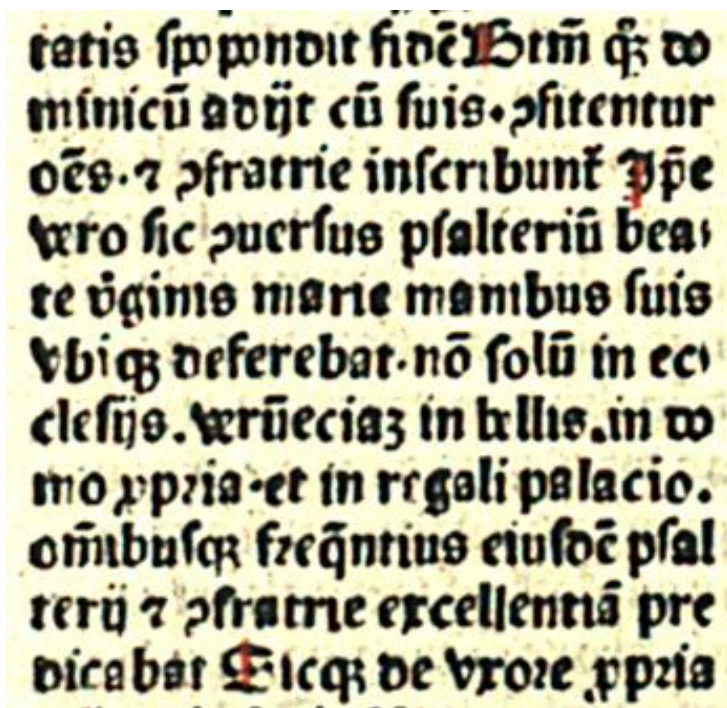 tatis ſpopondit fidē Stm̄ qᷓꝫ do
minicū adijt cū ſuis. ꝯfitentur
oēs. ⁊ ꝯfratrie inſcribunt᷑ Ip̄e
vero ſic ꝯuerſus pſalteriū bea⸗
te v̓ginis marie manibus ſuis
vbiqꝫ deferebat. nō ſolū in ec⸗
cleſijs. verūeciaꝫ in bellis. in do
mo ꝓpꝛia. et in regali palacio.
om̄ibuſqꝫ freq̄ntius eiuſdē pſal
terij ⁊ ꝯfratrie excellentiā pre
dicabat Sicqꝫ de vxoꝛe ꝓpꝛia